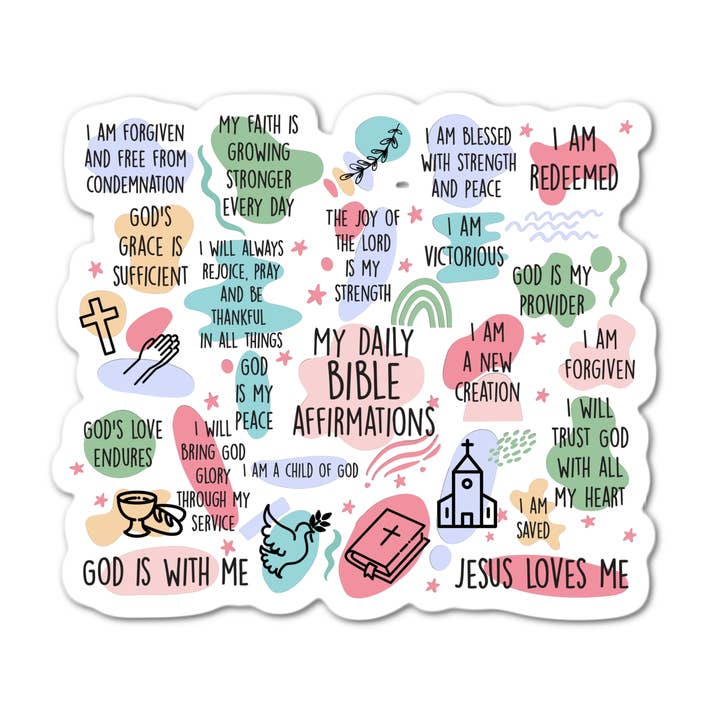 I AM FORGIVEN
AND FREE FROM
CONDEMNATION
MY FAITH IS
GROWING
STRONGER
EVERY DAY
I AM BLESSED
WITH STRENGTH
AND PEACE
I AM
REDEEMED
GOD'S
GRACE IS
SUFFICIENT
I WILL ALWAYS
REJOICE, PRAY
AND BE
THANKFUL
IN ALL THINGS
THE JOY OF
THE LORD
IS MY
STRENGTH
I AM
VICTORIOUS
GOD IS MY
PROVIDER
MY DAILY
BIBLE
AFFIRMATIONS
I AM
A NEW
CREATION
I AM
FORGIVEN
GOD
IS MY
PEACE
GOD'S LOVE
ENDURES
I WILL
BRING GOD
GLORY
THROUGH MY
SERVICE
I AM A CHILD OF GOD
I WILL
TRUST GOD
WITH ALL
MY HEART
I AM
SAVED
GOD IS WITH ME
JESUS LOVES ME